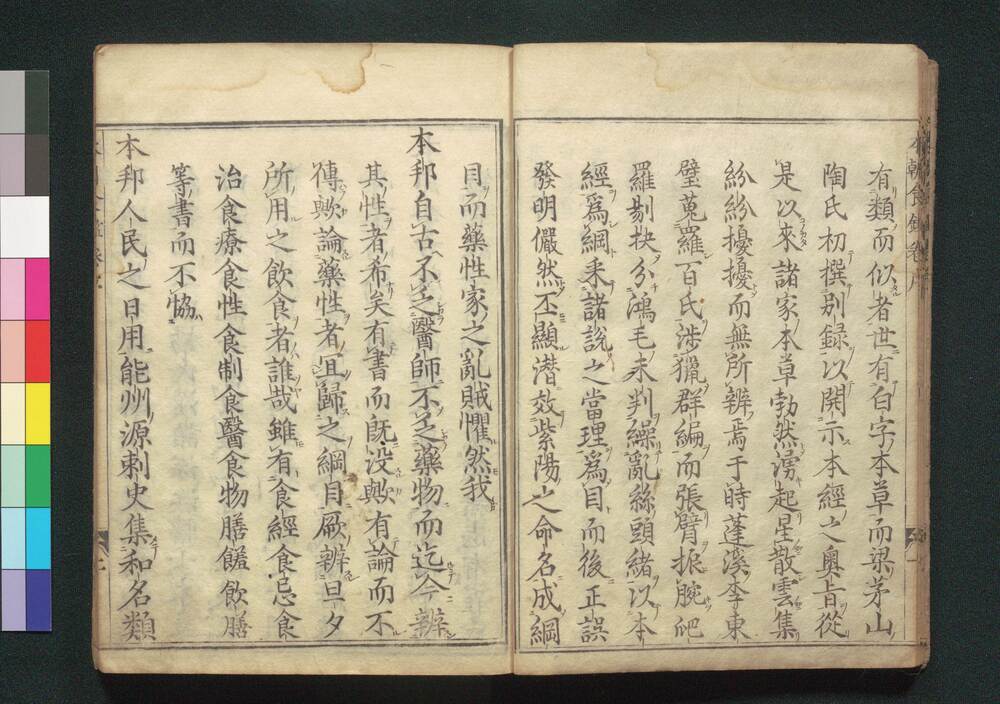 有類而似者世有白字本草而梁茅山
陶氏初撰別録以開示本經之奥旨從
是以來諸家本草勃然湧起星散雲集
紛紛擾擾而無所辨焉于時蓬溪李東
璧蒐羅百氏渉獵群編而張臂振腕爬
羅剔抉分鴻毛未判繰亂絲頭緒以本
經爲綱采諸説之當理爲目而後正誤
發明儼然丕顯潜效紫陽之命名成綱
目而藥性家之亂賊懼然我
本邦自古不乏醫師不乏藥物而迄今辨
其性者希矣有書而既没歟有論而不
傳歟論藥性者冝歸之綱目厥辨旦夕
所用之飲食者誰哉雖有食經食忌食
治食療食性食制食醫食物膳饈飲膳
等書而不恊
本邦人民之日用能州源刺史集和名類